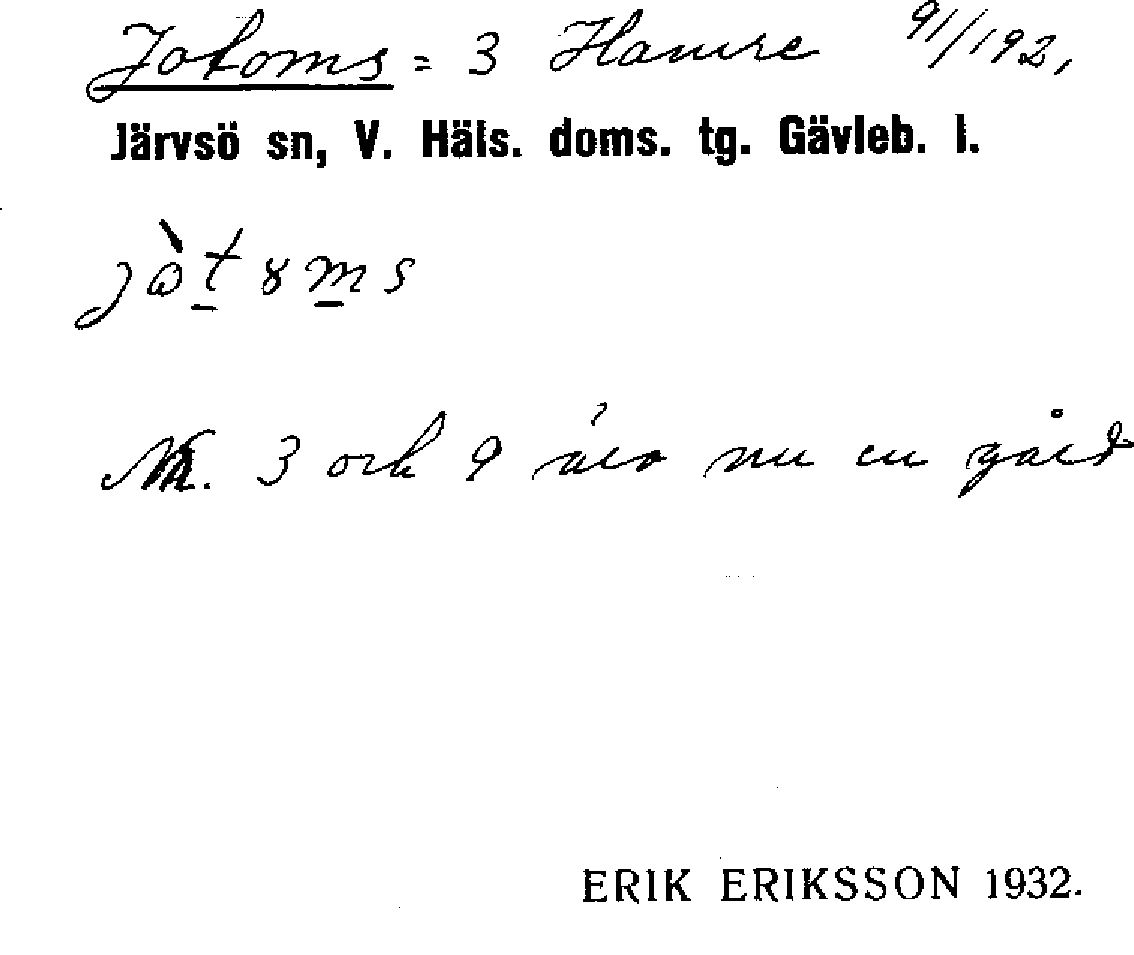 Jotoms = 3 Hamre 91/192,
Järvsö sn, V. Häls. doms. tg. Gävleb. l.
jòtɤms
Nr. 3 och 9 äro nu en gård
ERIK ERIKSSON 1932.